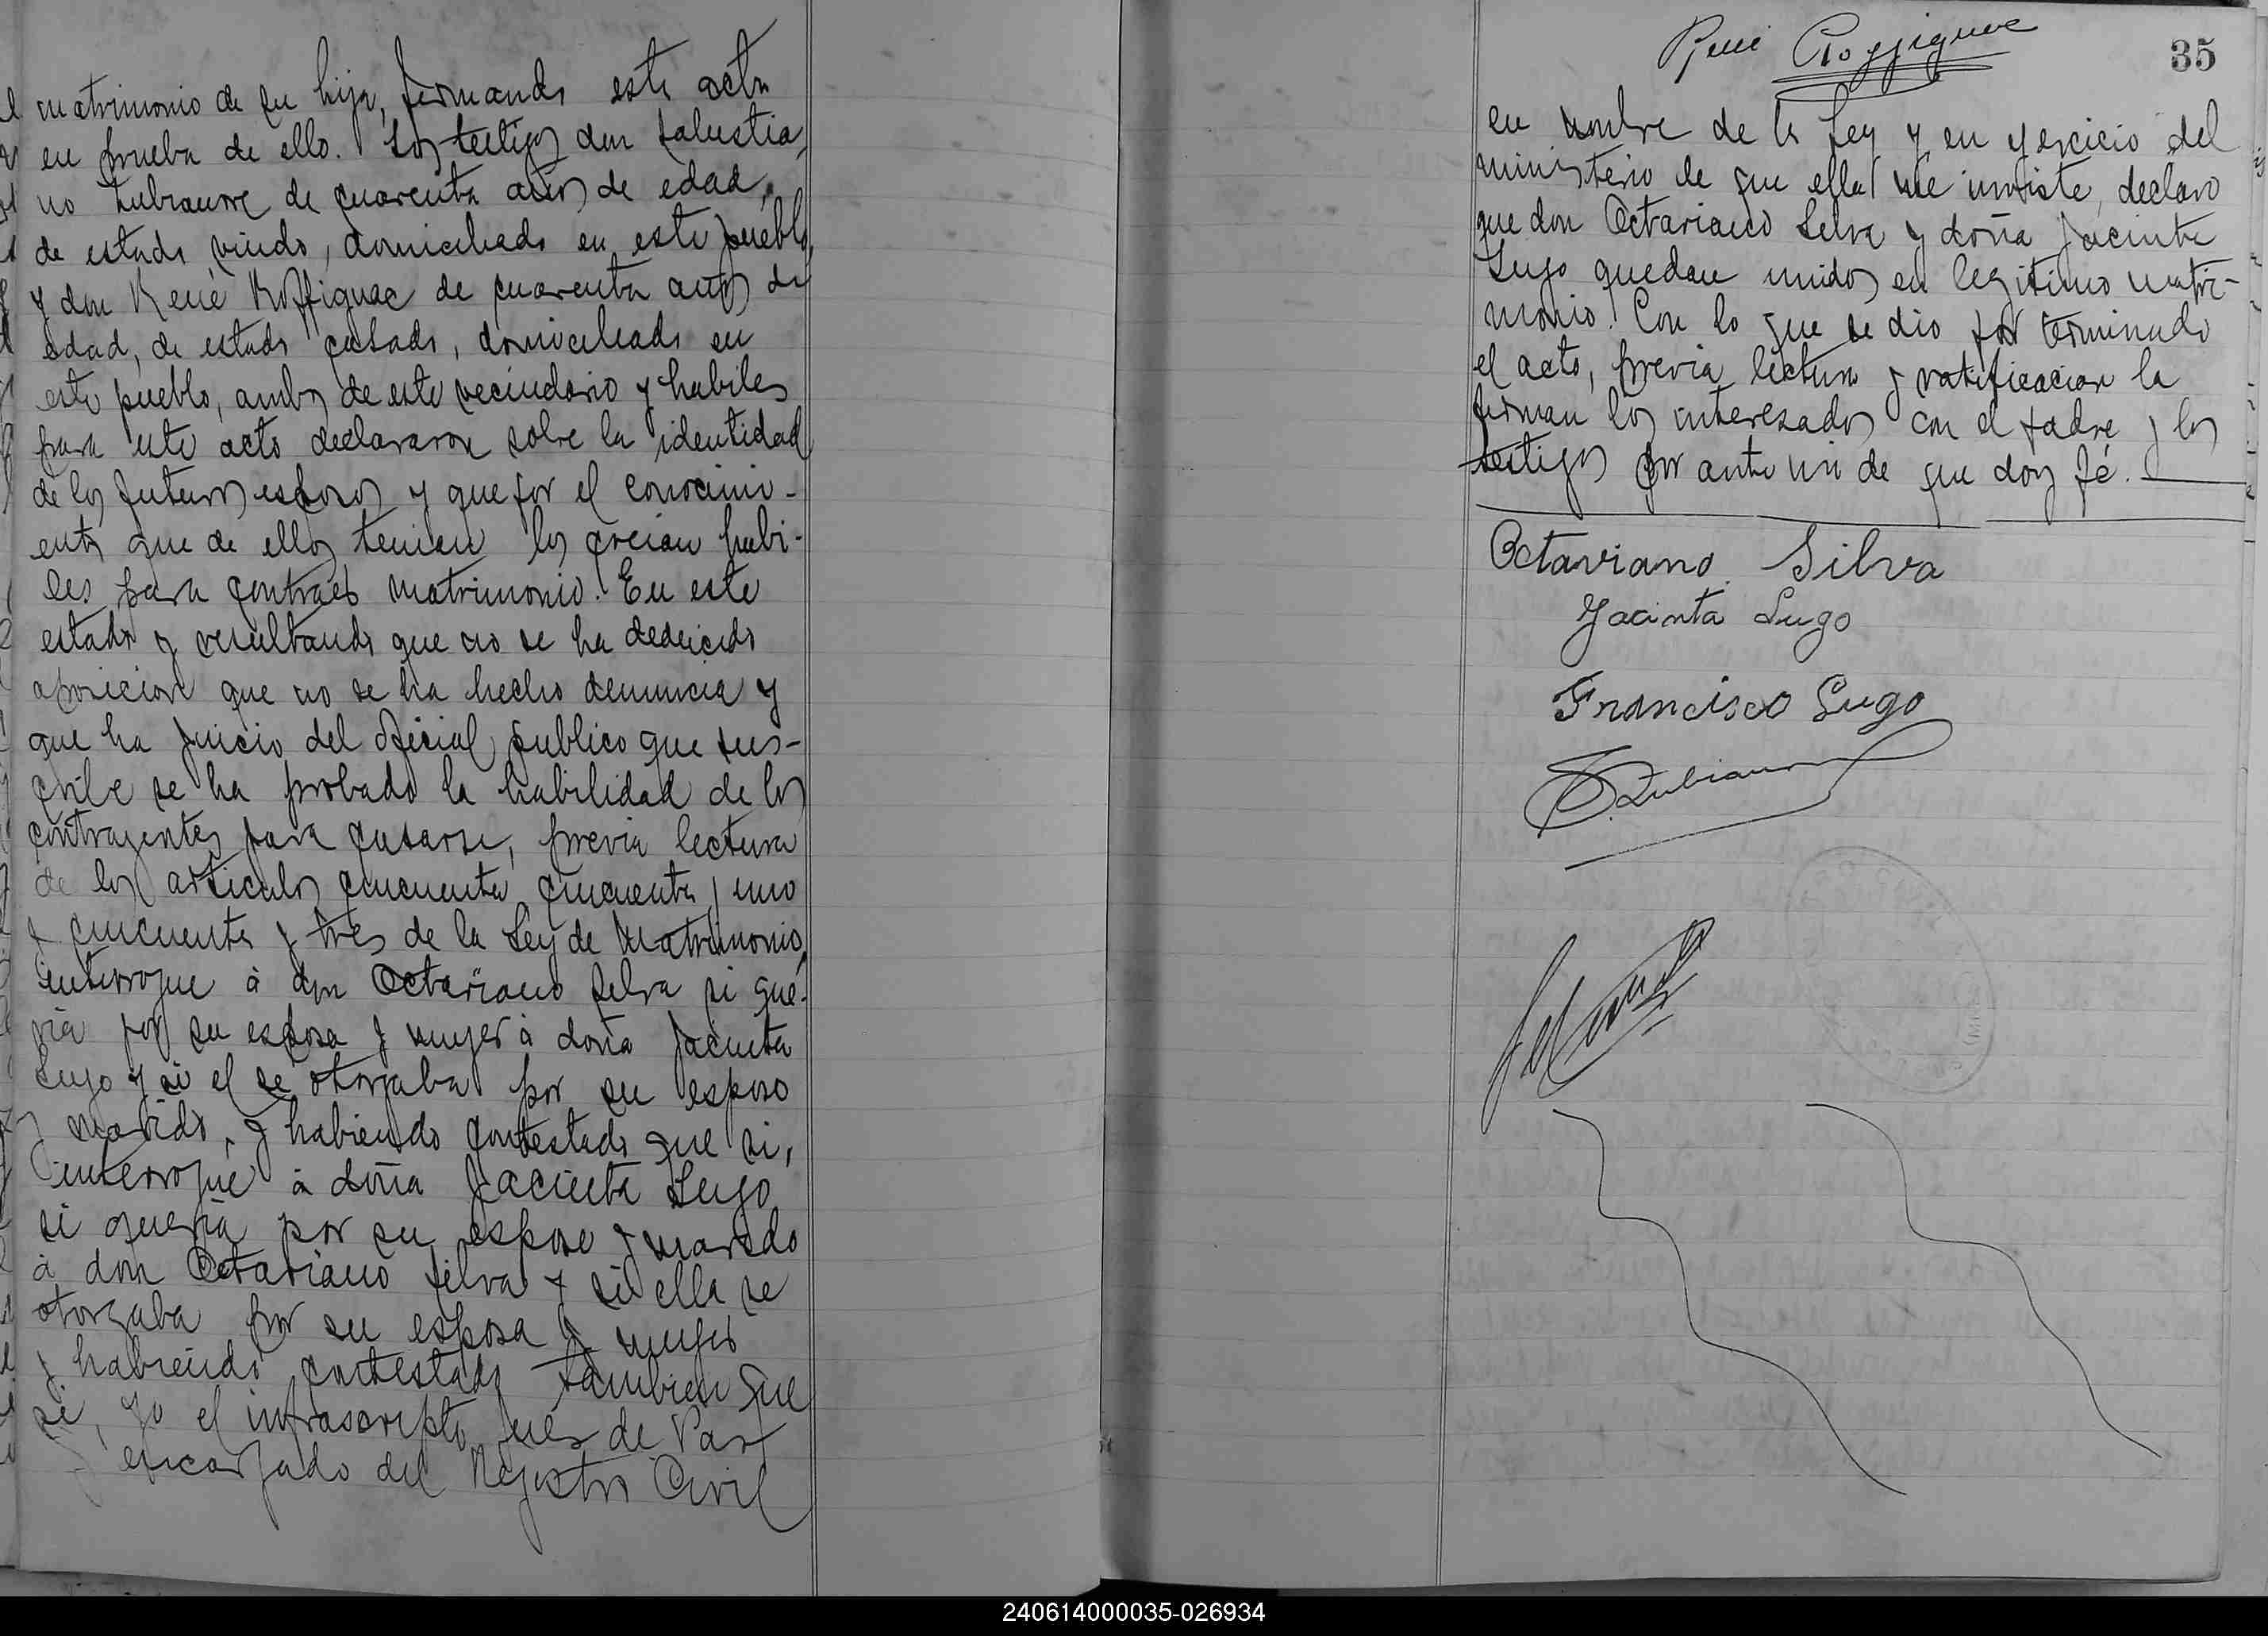 matrimonio de su hija, firmando esta acta
en prueba de ello. Los testigos don Salustia-
no Zubiaurre de cuarenta años de edad,
de estado viudo, domiciliado en este pueblo,
y don René Roffignac de cuarenta años de
edad, de estado casado, domiciliado en
este pueblo, ambos de este vecindario y habiles
para este acto declararon sobre la identidad
de los futuros esposos y que por el conocimi-
ento que de ellos tenian los creian habi-
les para contraer matrimonio. En este
estado y resultando que no se ha deducido
oposicion que no se ha hecho denuncia y
que ha juicio del oficial publico que sus-
cribe se ha probado la habilidad de los
contrayentes para casarse, previa lectura
de los articulos cincuenta, cincuenta y uno
y cincuenta y tres de la Ley de Matrimonio,
interrogue á don Octaviano Silva si que-
ria por su esposa y muger á doña Jacinta
Lugo y si el se otorgaba por su esposo
y marido, y habiendo contestado que si,
interrogué á doña Jacinta Lugo
si queria por su esposo y marido
á don Octaviano Silva y si ella se
otorgaba por su esposa y muger
y habiendo contestado tambien que
si, yo el infrascripto Juez de Paz
y encargado del Registro Civil
René Roffignac
35
en nombre de la Ley y en ejercicio del
ministerio de que ella me inviste, declaro
que don Octaviano Silva y doña Jacinta
Lugo quedan unidos en legitimo matri-
monio. Con lo que se dio por terminado
el acto, previa lectura y ratificacion la
firman los interesados con el padre y los
testigos por ante mi de que doy fé.
Octaviano Silva
Jacinta Lugo
Francisco Lugo
S. Zubiaurre
240614000035-026934